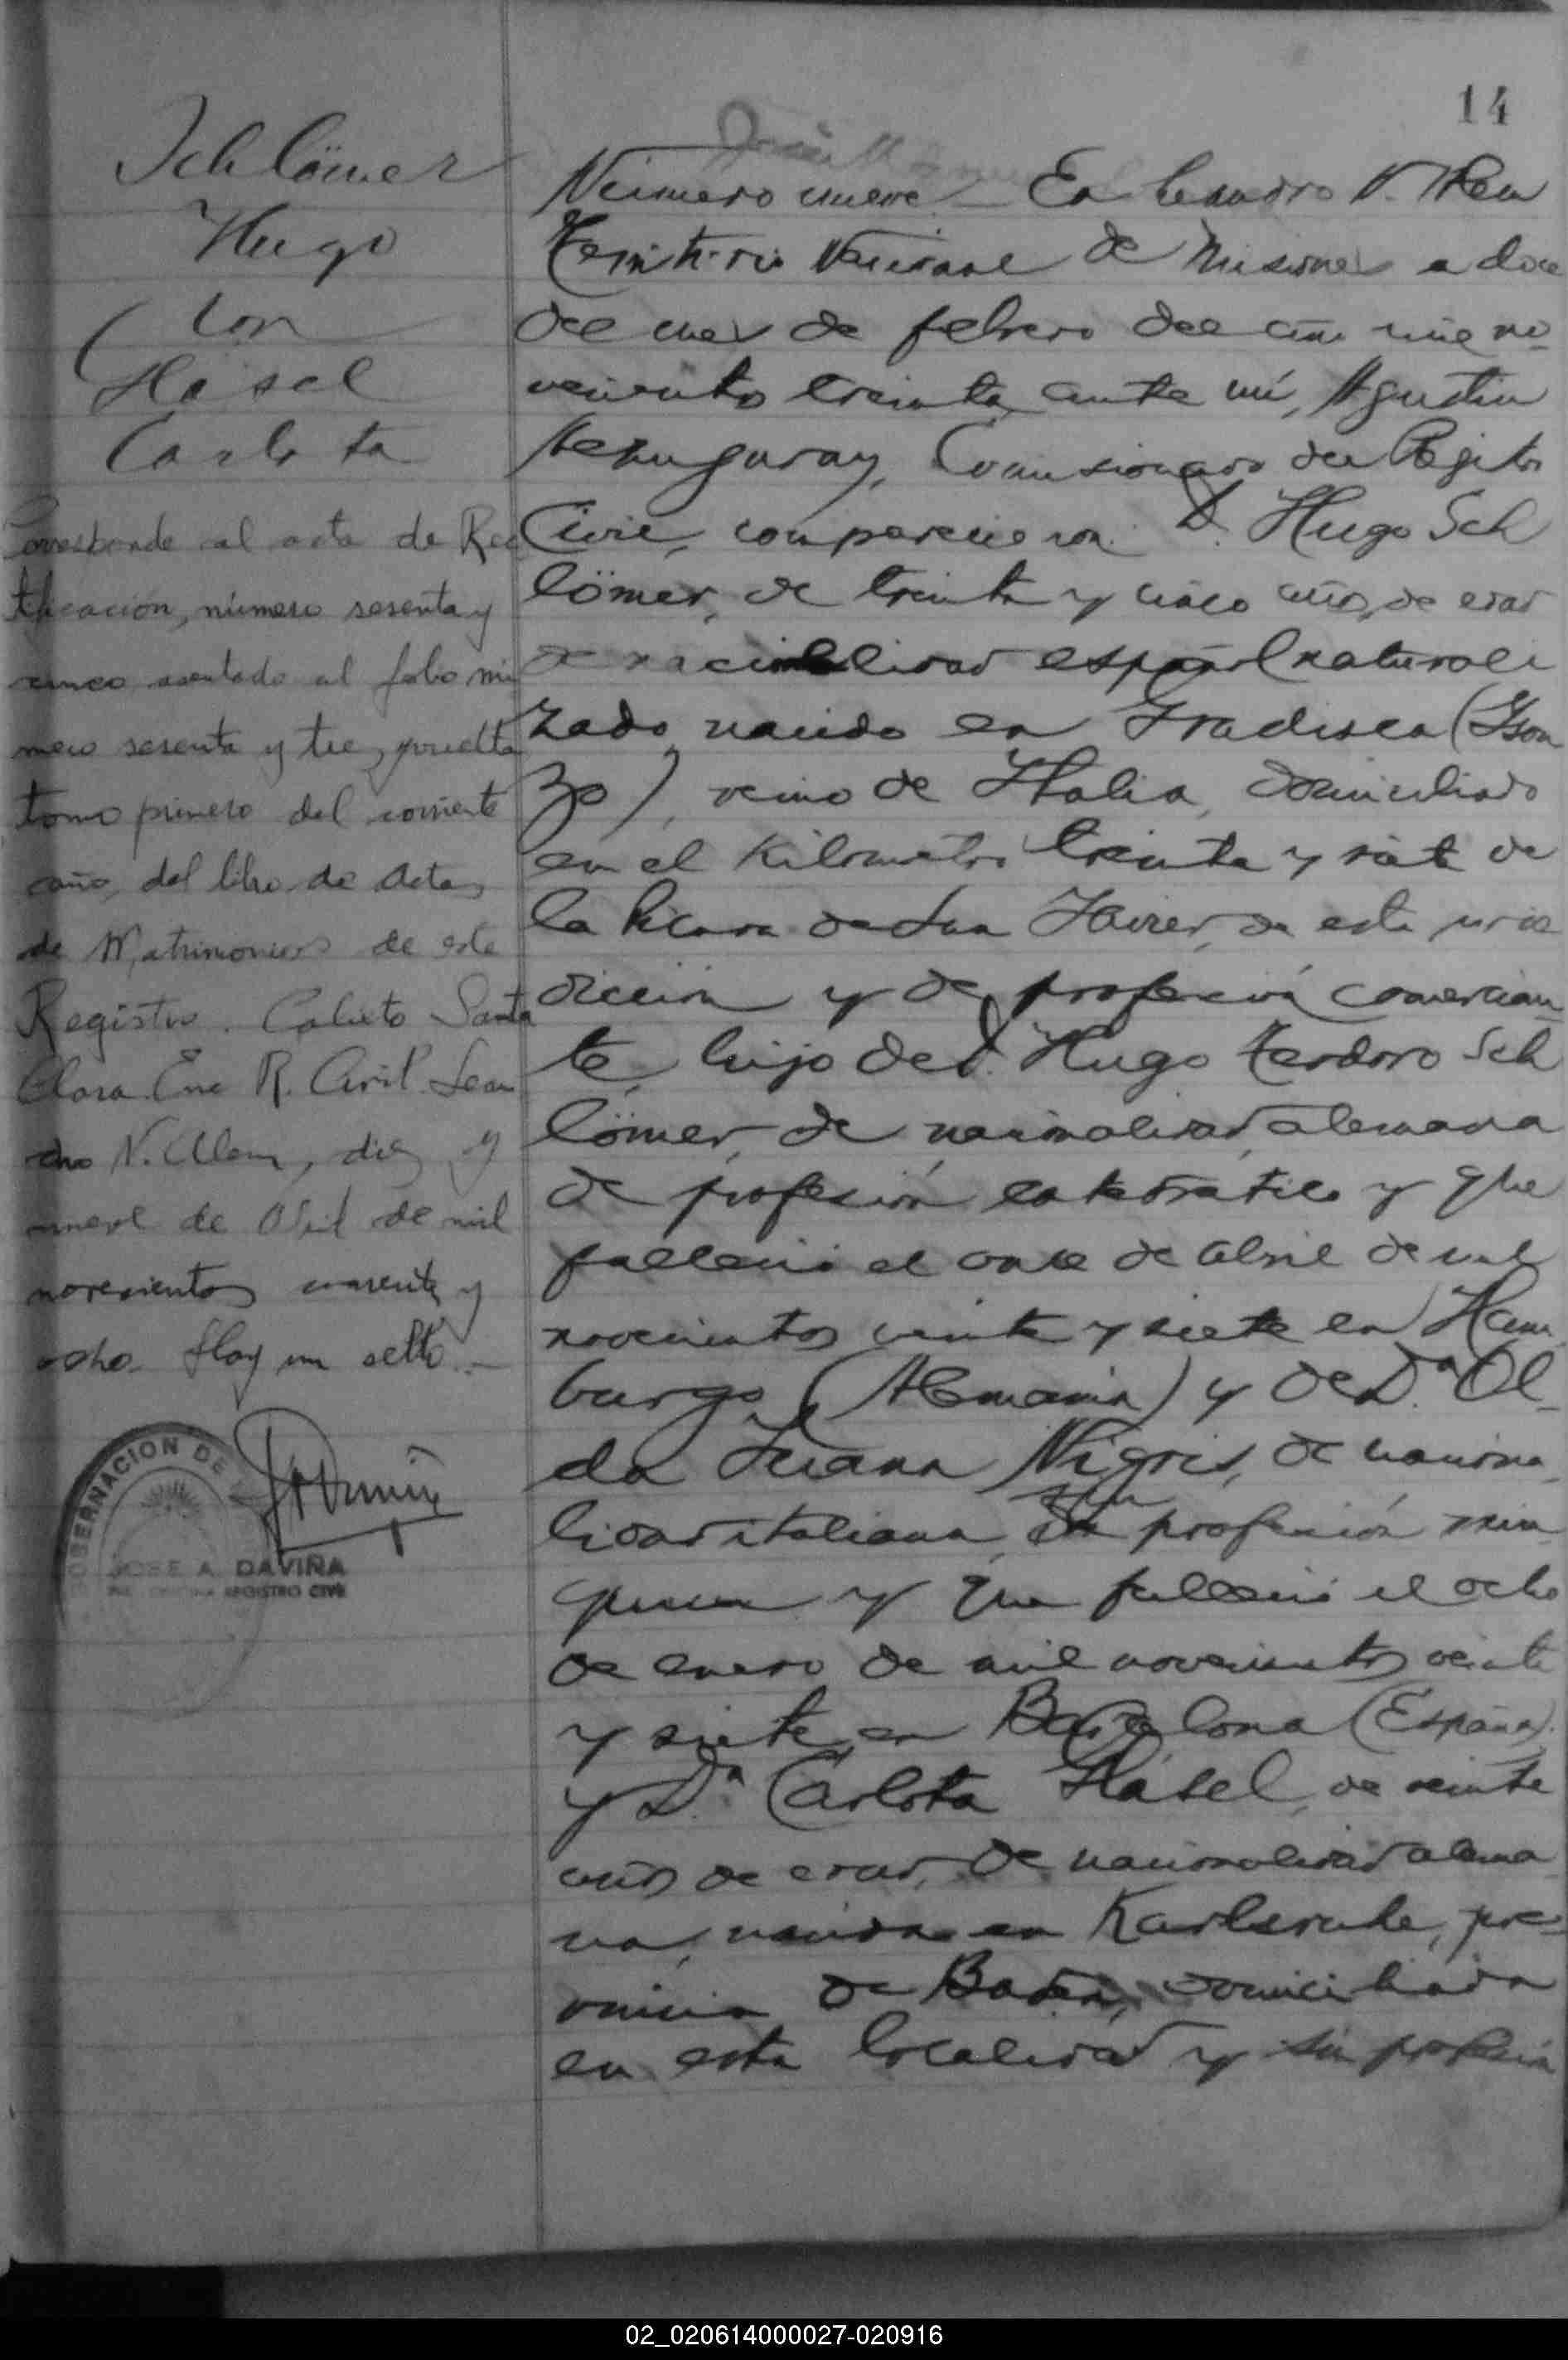 14
Schlömer
Hugo
con
Häsel
Carlota
Corresponde al acta de Rec
tificación, número sesenta y
cinco, asentado al folio nú
mero sesenta y tres, vuelta
tomo primero del corriente
año, del libro de Actas
de Matrimonios de este
Registro. Calixto Santa
Clara. Enc R. Civil. Lean
dro N. Alem, diez y
nueve de Abril de mil
novecientos cuarenta y
ocho. Hay un sello.-
GOBERNACION DE
JOSE A. DAVIÑA
REGISTRO CIVIL
Número nueve - En Leandro N. Alem
Territorio Nacional de Misiones a doce
del mes de febrero del año mil no-
vecientos treinta, ante mí, Agustin
Comisionado del Registro
Civil, comparecieron: D. Hugo Sch
lömer, de treinta y cinco años de edad
de nacionalidad español naturali
zado nacido en Gradisca (Ison
zo), reino de Italia, domiciliado
en el Kilometro treinta y siete de
la Picada de San Javier, de esta juris
dicción y de profesión comercian-
te, hijo de D. Hugo Teodoro Sch
lömer, de nacionalidad alemana
de profesión catedrático y que
falleció el once de abril de mil
novecientos veinte y siete en Ham
burgo (Alemania) y de Da. Ol-
da Juana Nigris, de naciona
lidad italiana, sin profesión nin-
guna y que falleció el ocho
de enero de mil novecientos veinte
y siete en Barcelona (España).
y Da. Carlota Häsel, de veinte
años de edad, de nacionalidad alema
na, nacida en Karlsruhe, pro-
vincia de Baden, domiciliada
en esta localidad y sin profesión
02_020614000027-020916